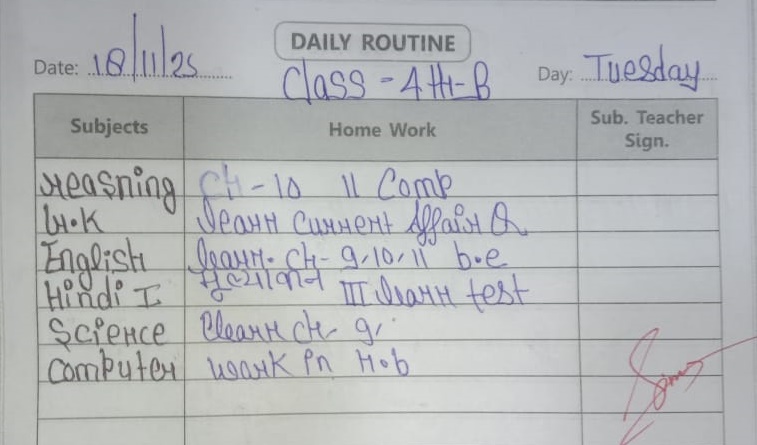 DAILY ROUTINE
Date: 18/11/25 Day: Tuesday
Class - 4th-B
Subjects Home Work Sub. Teacher Sign.
reasning Ch-10 11 Comp
G.K learn current Affair Q
English learn. Ch- 9,10,11 b.e
Hindi I मूल्यांकन III learn test
Science learn ch- 9,
Computer work in n.b